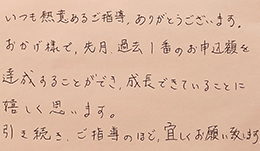 いつも熱意あるご指導、ありがとうございます。
おかげ様で、先月、過去1番のお申込額を
達成することができ、成長できていることに
嬉しく思います。
引き続き、ご指導のほど、宜しくお願い致します